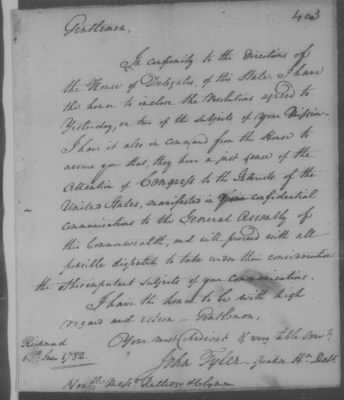 403
Gentlemen,
In conformity to the Directions of
the House of Delegates, of this State, I have
the honor to inclose the Resolutions agreed to
Yesterday, on two of the subjects of your Mission.
I have it also in command from the House to
assure you that, they have a just sense of the
Attention of Congress to the Interests of the
United States, manifested in confidential
communications to the General Assembly of
this Commonwealth, and will proceed with all
possible dispatch to take under their consideration
the other important subjects of your communications.
I have the honor to be with high
regard and esteem - Gentlemen.
Your most obedient & very hble Serv.t
Richmond
June 1782.
John Tyler
Hon.ble